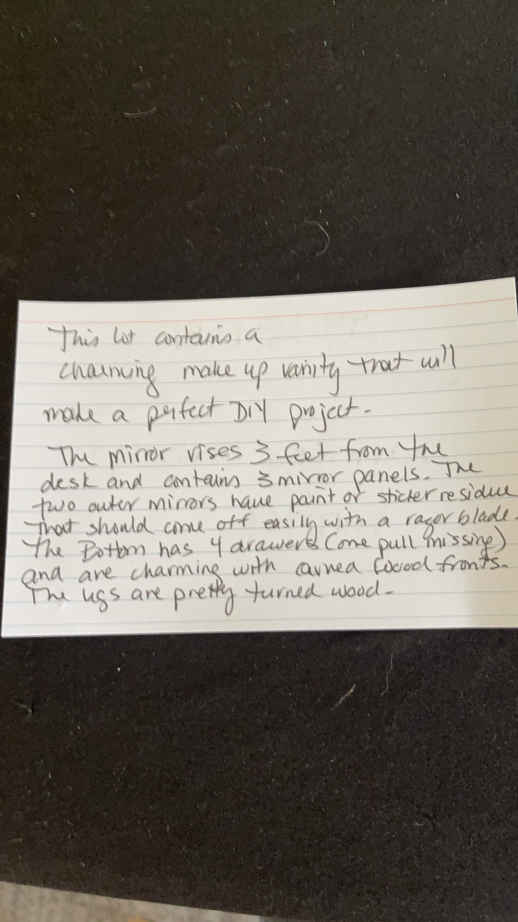 This lot contains a
charming make up vanity that will
make a perfect DIY project.
The mirror rises 3 feet from the
desk and contains 3 mirror panels. The
two outer mirrors have paint or sticker residue
that should come off easily with a razor blade.
The Bottom has 4 drawers (one pull missing)
and are charming with fronts.
The legs are pretty turned wood.